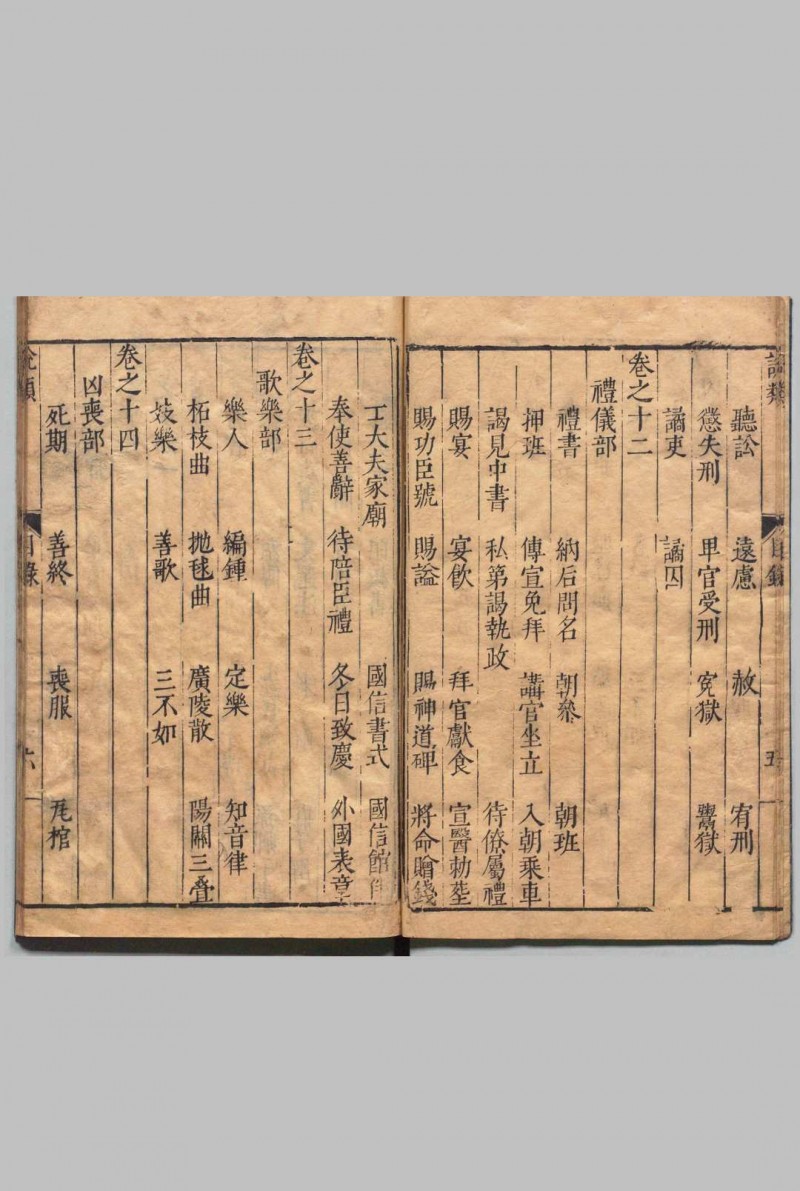 說類 目錄 五
聽訟 遠慮 赦 宥刑
懲失刑 卑官受刑 寃獄 鬻獄
讞吏 讞囚
卷之十二
禮儀部
禮書 納后問名 朝叅 朝班
押班 傳宣免拜 講官坐立 入朝乘車
謁見中書 私第謁執政 待僚屬禮
賜宴 宴飲 拜官獻食 宣醫勑塟
賜功臣號 賜謚 賜神道碑 將命贈錢
士大夫家廟 國信書式 國信館
奉使善辭 待陪臣禮 冬日致慶 外國表章
卷之十三
歌樂部
樂人 編鍾 定樂 知音律
柘枝曲 抛毬曲 廣陵散 陽關三疊
妓樂 善歌 三不如
卷之十四
凶喪部
死期 善終 喪服 瓦棺
說類 目錄 六